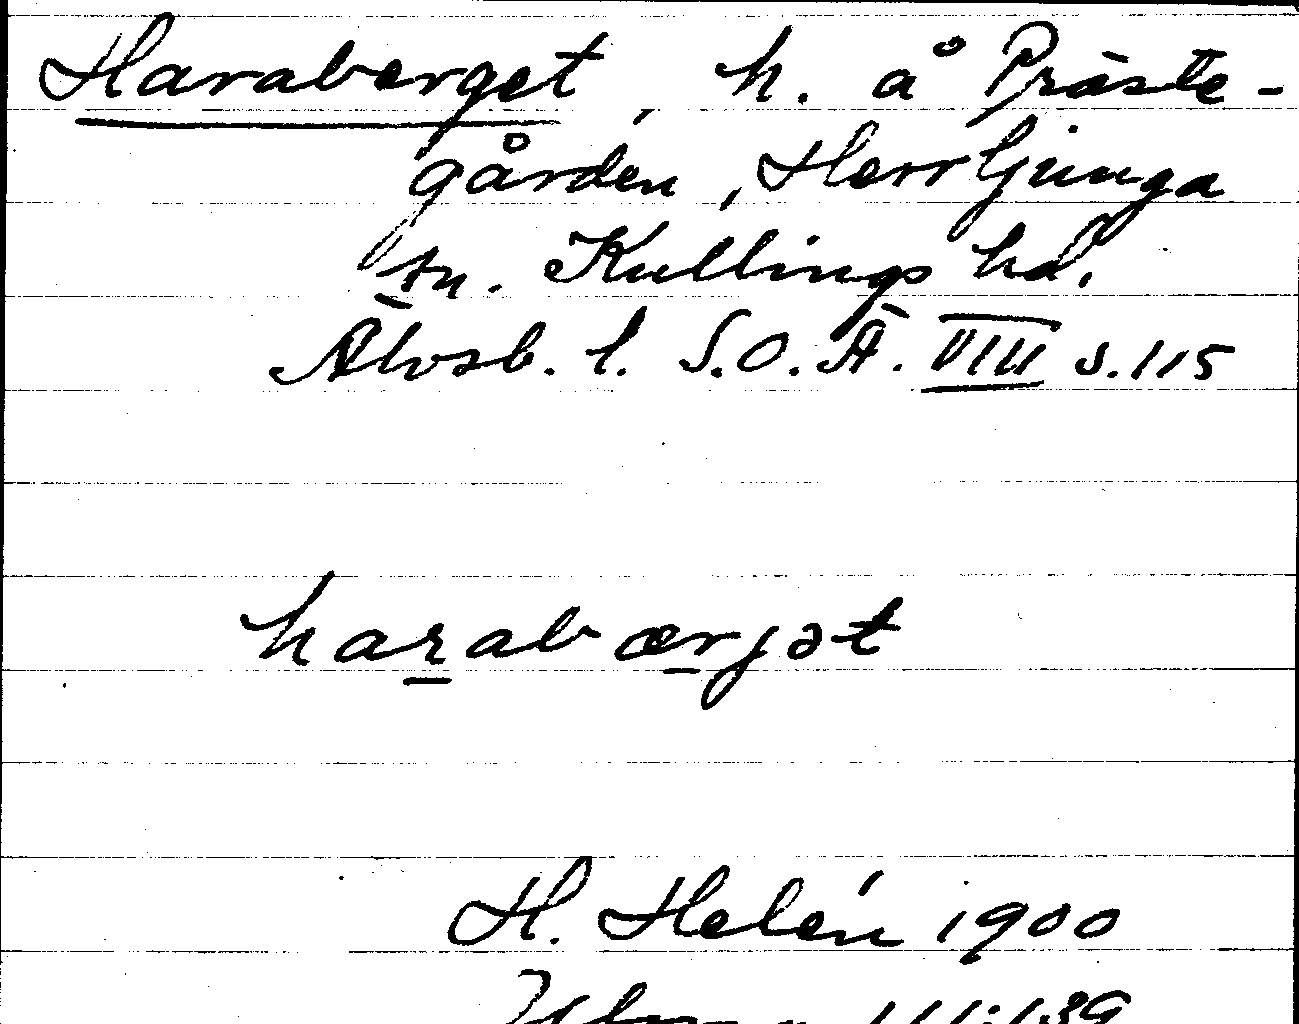 Haraberget, h. å Präste-
gården, Herrljunga
sn. Kullings hd.
Älvsb. l. S.O.Ä. VIII s. 115
harabærjət
H. Helén 1900